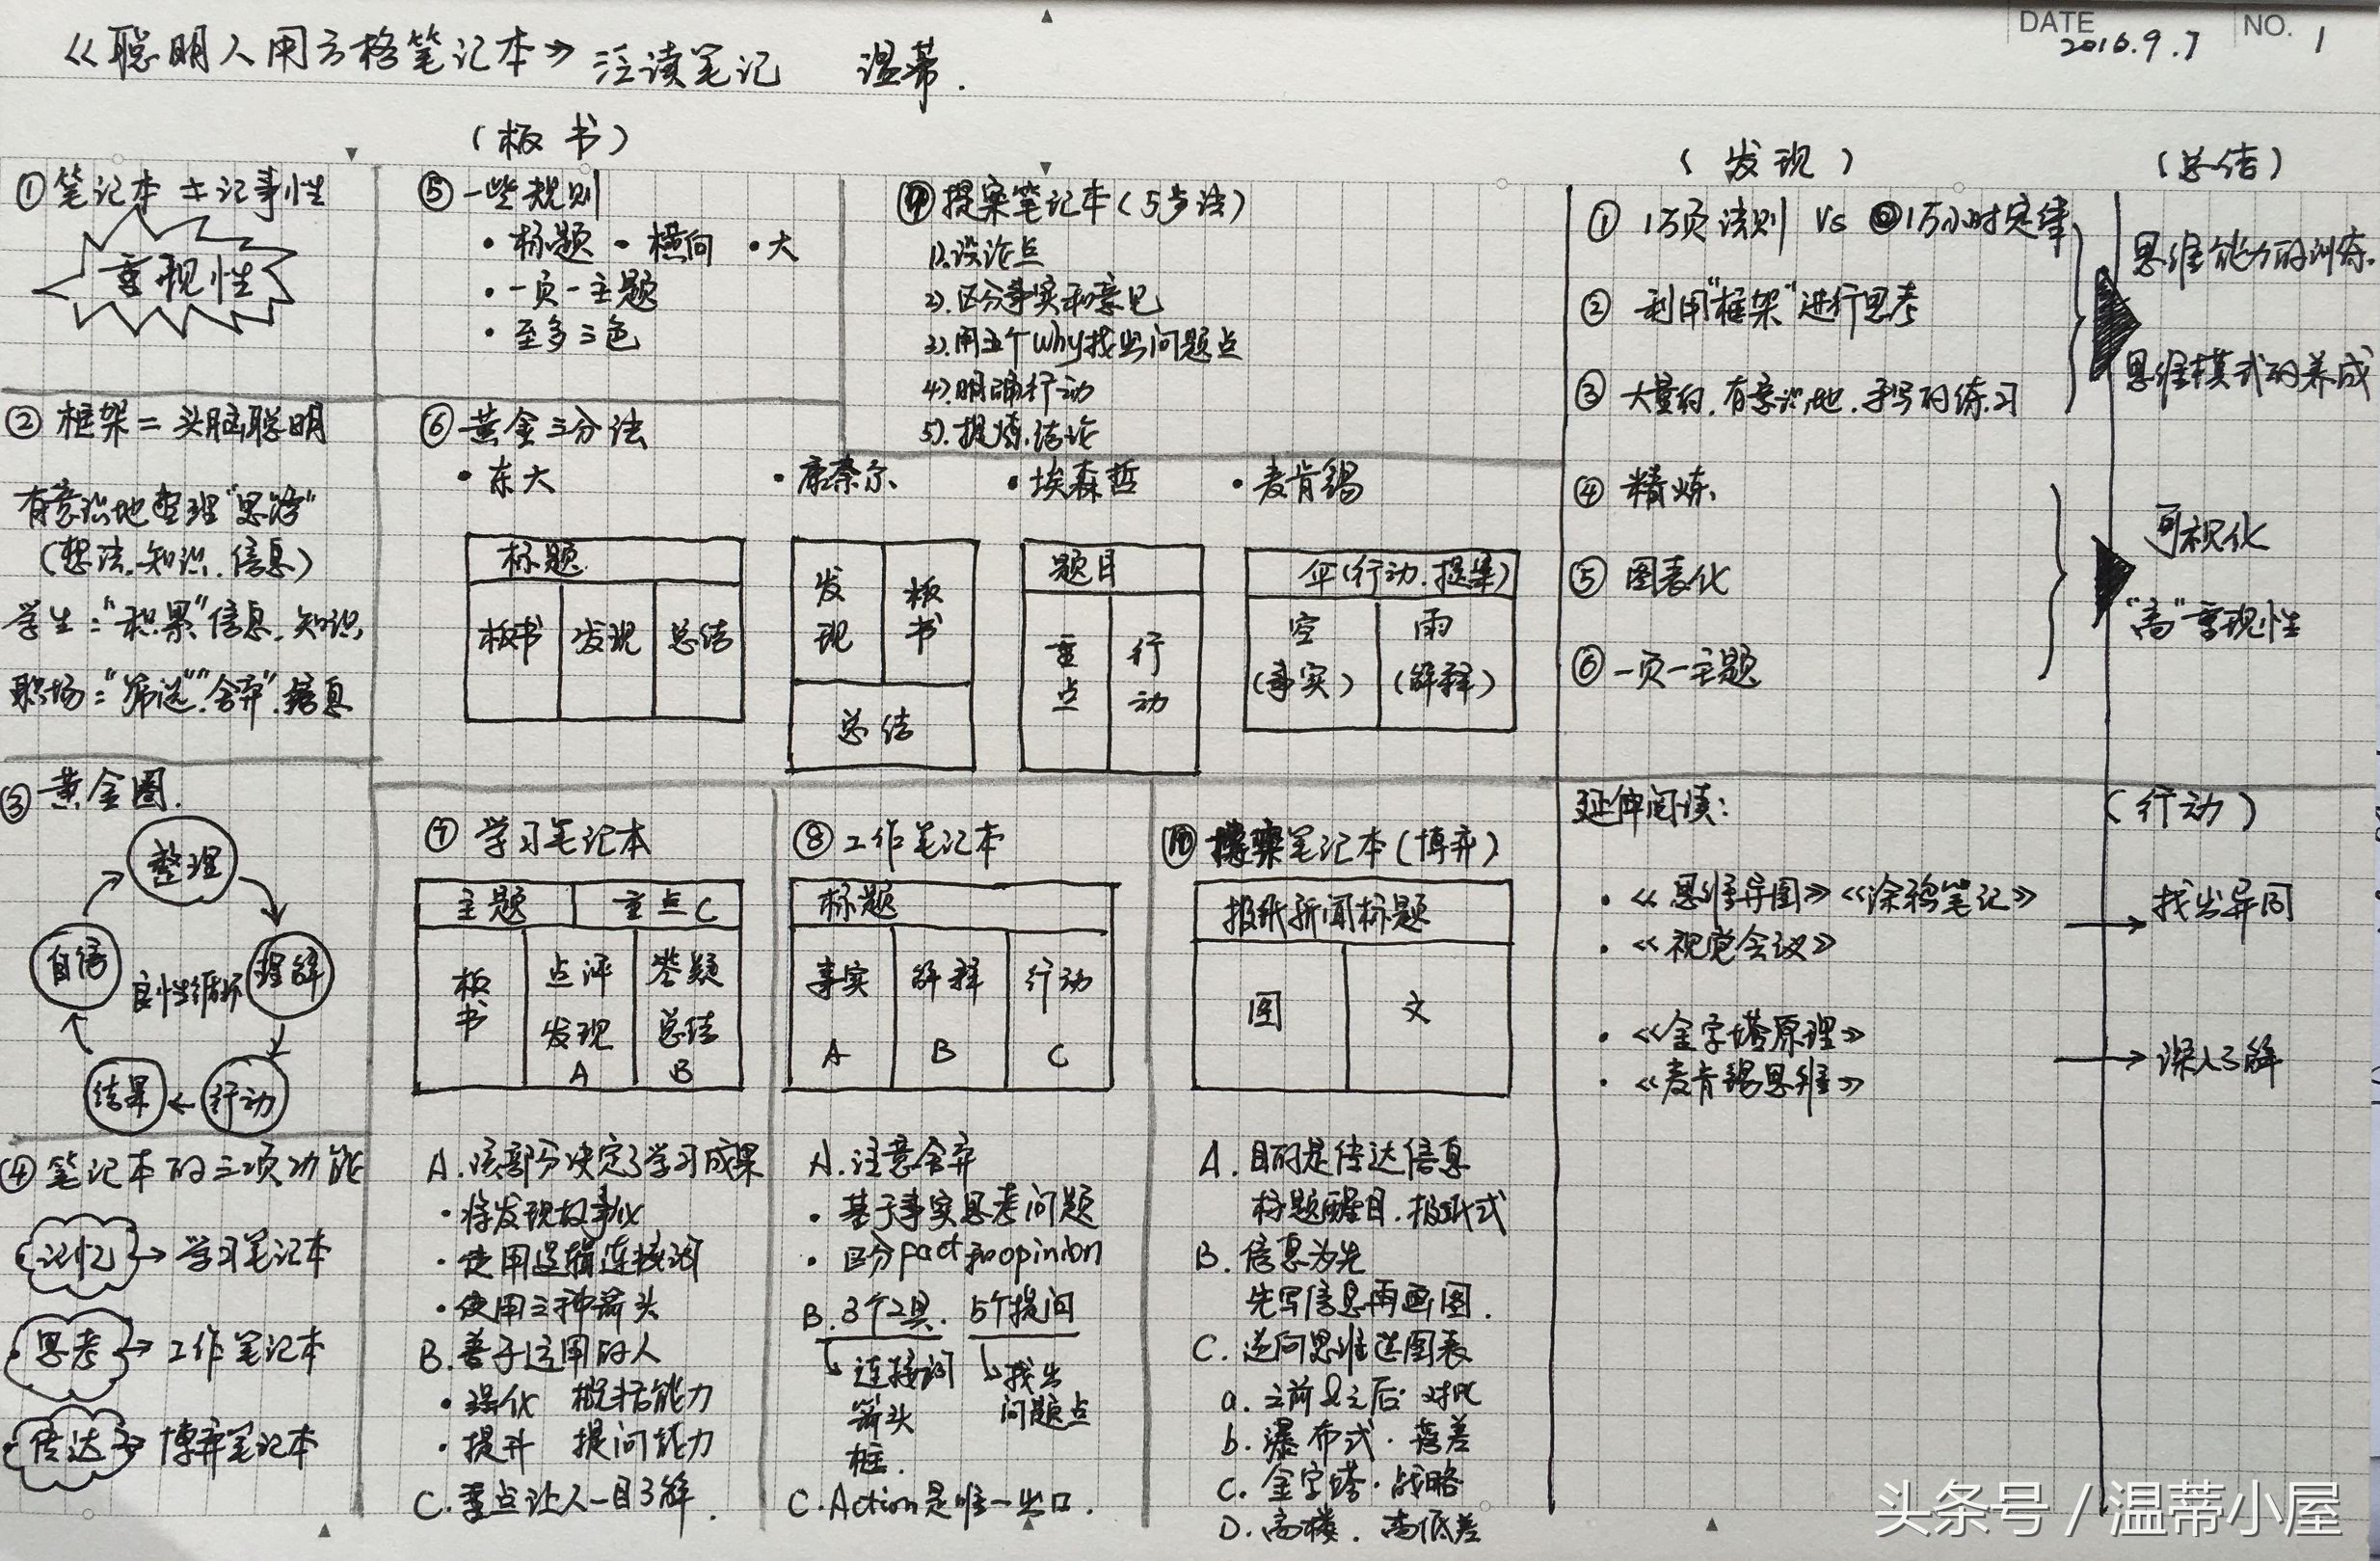 《聪明人用方格笔记本》泛读笔记 温蒂.
DATE 2016.9.7 NO. 1
(板书)
①笔记本≠记事性
重现性
②框架=头脑聪明
有意识地整理"思路"
(想法.知识.信息)
学生:"积累"信息.知识.
职场:"筛选""舍弃".信息
③黄金圈.
整理
理解
行动
结果
自信
良性循环
④笔记本的三项功能
记忆→学习笔记本
思考→工作笔记本
传达→博弈笔记本
⑤一些规则
·标题 ·横向 ·大
·一页一主题
·至多三色
⑥黄金三分法
·东大 ·康奈尔 ·埃森哲 ·麦肯锡
标题
板书 发现 总结
发现 板书
总结
题目
重点 行动
伞(行动.提案)
空(事实) 雨(解释)
⑦学习笔记本
主题 重点C
板书
点评 发现 A
答疑 总结 B
A.该部分决定了学习成果
·将发现故事化
·使用逻辑连接词
·使用三种箭头
B.善于运用的人
·强化 概括能力
·提升 提问能力
C.重点让人一目了解.
⑧工作笔记本
标题
事实 A
解释 B
行动 C
A.注意舍弃
·基于事实思考问题
·区分fact和opinion
B.3个工具. 5个提问
连接词 箭头 框.
找出问题点
C.Action是唯一出口.
提案笔记本(5步法)
1).设论点
2).区分事实和意见
3).用五个Why找出问题点
4).明确行动
5).提炼.结论
⑩ 笔记本(博弈)
报纸新闻标题
图 文
A.目的是传达信息
标题醒目.报纸式
B.信息为先
先写信息再画图.
C.逆向思维选图表
a.之前&之后·对比
b.瀑布式·落差
c.金字塔·战略
D.高楼.高低差
(发现)
①1万页法则 Vs 1万小时定律
②利用"框架"进行思考
③大量的.有意识地.手写的练习
④精炼
⑤图表化
⑥一页一主题
(总结)
思维能力的训练.
思维模式的养成
可视化
"高"重现性
延伸阅读:
·《思维导图》《涂鸦笔记》
·《视觉会议》
·《金字塔原理》
·《麦肯锡思维》
(行动)
→找出异同
→深入了解
头条号 / 温蒂小屋